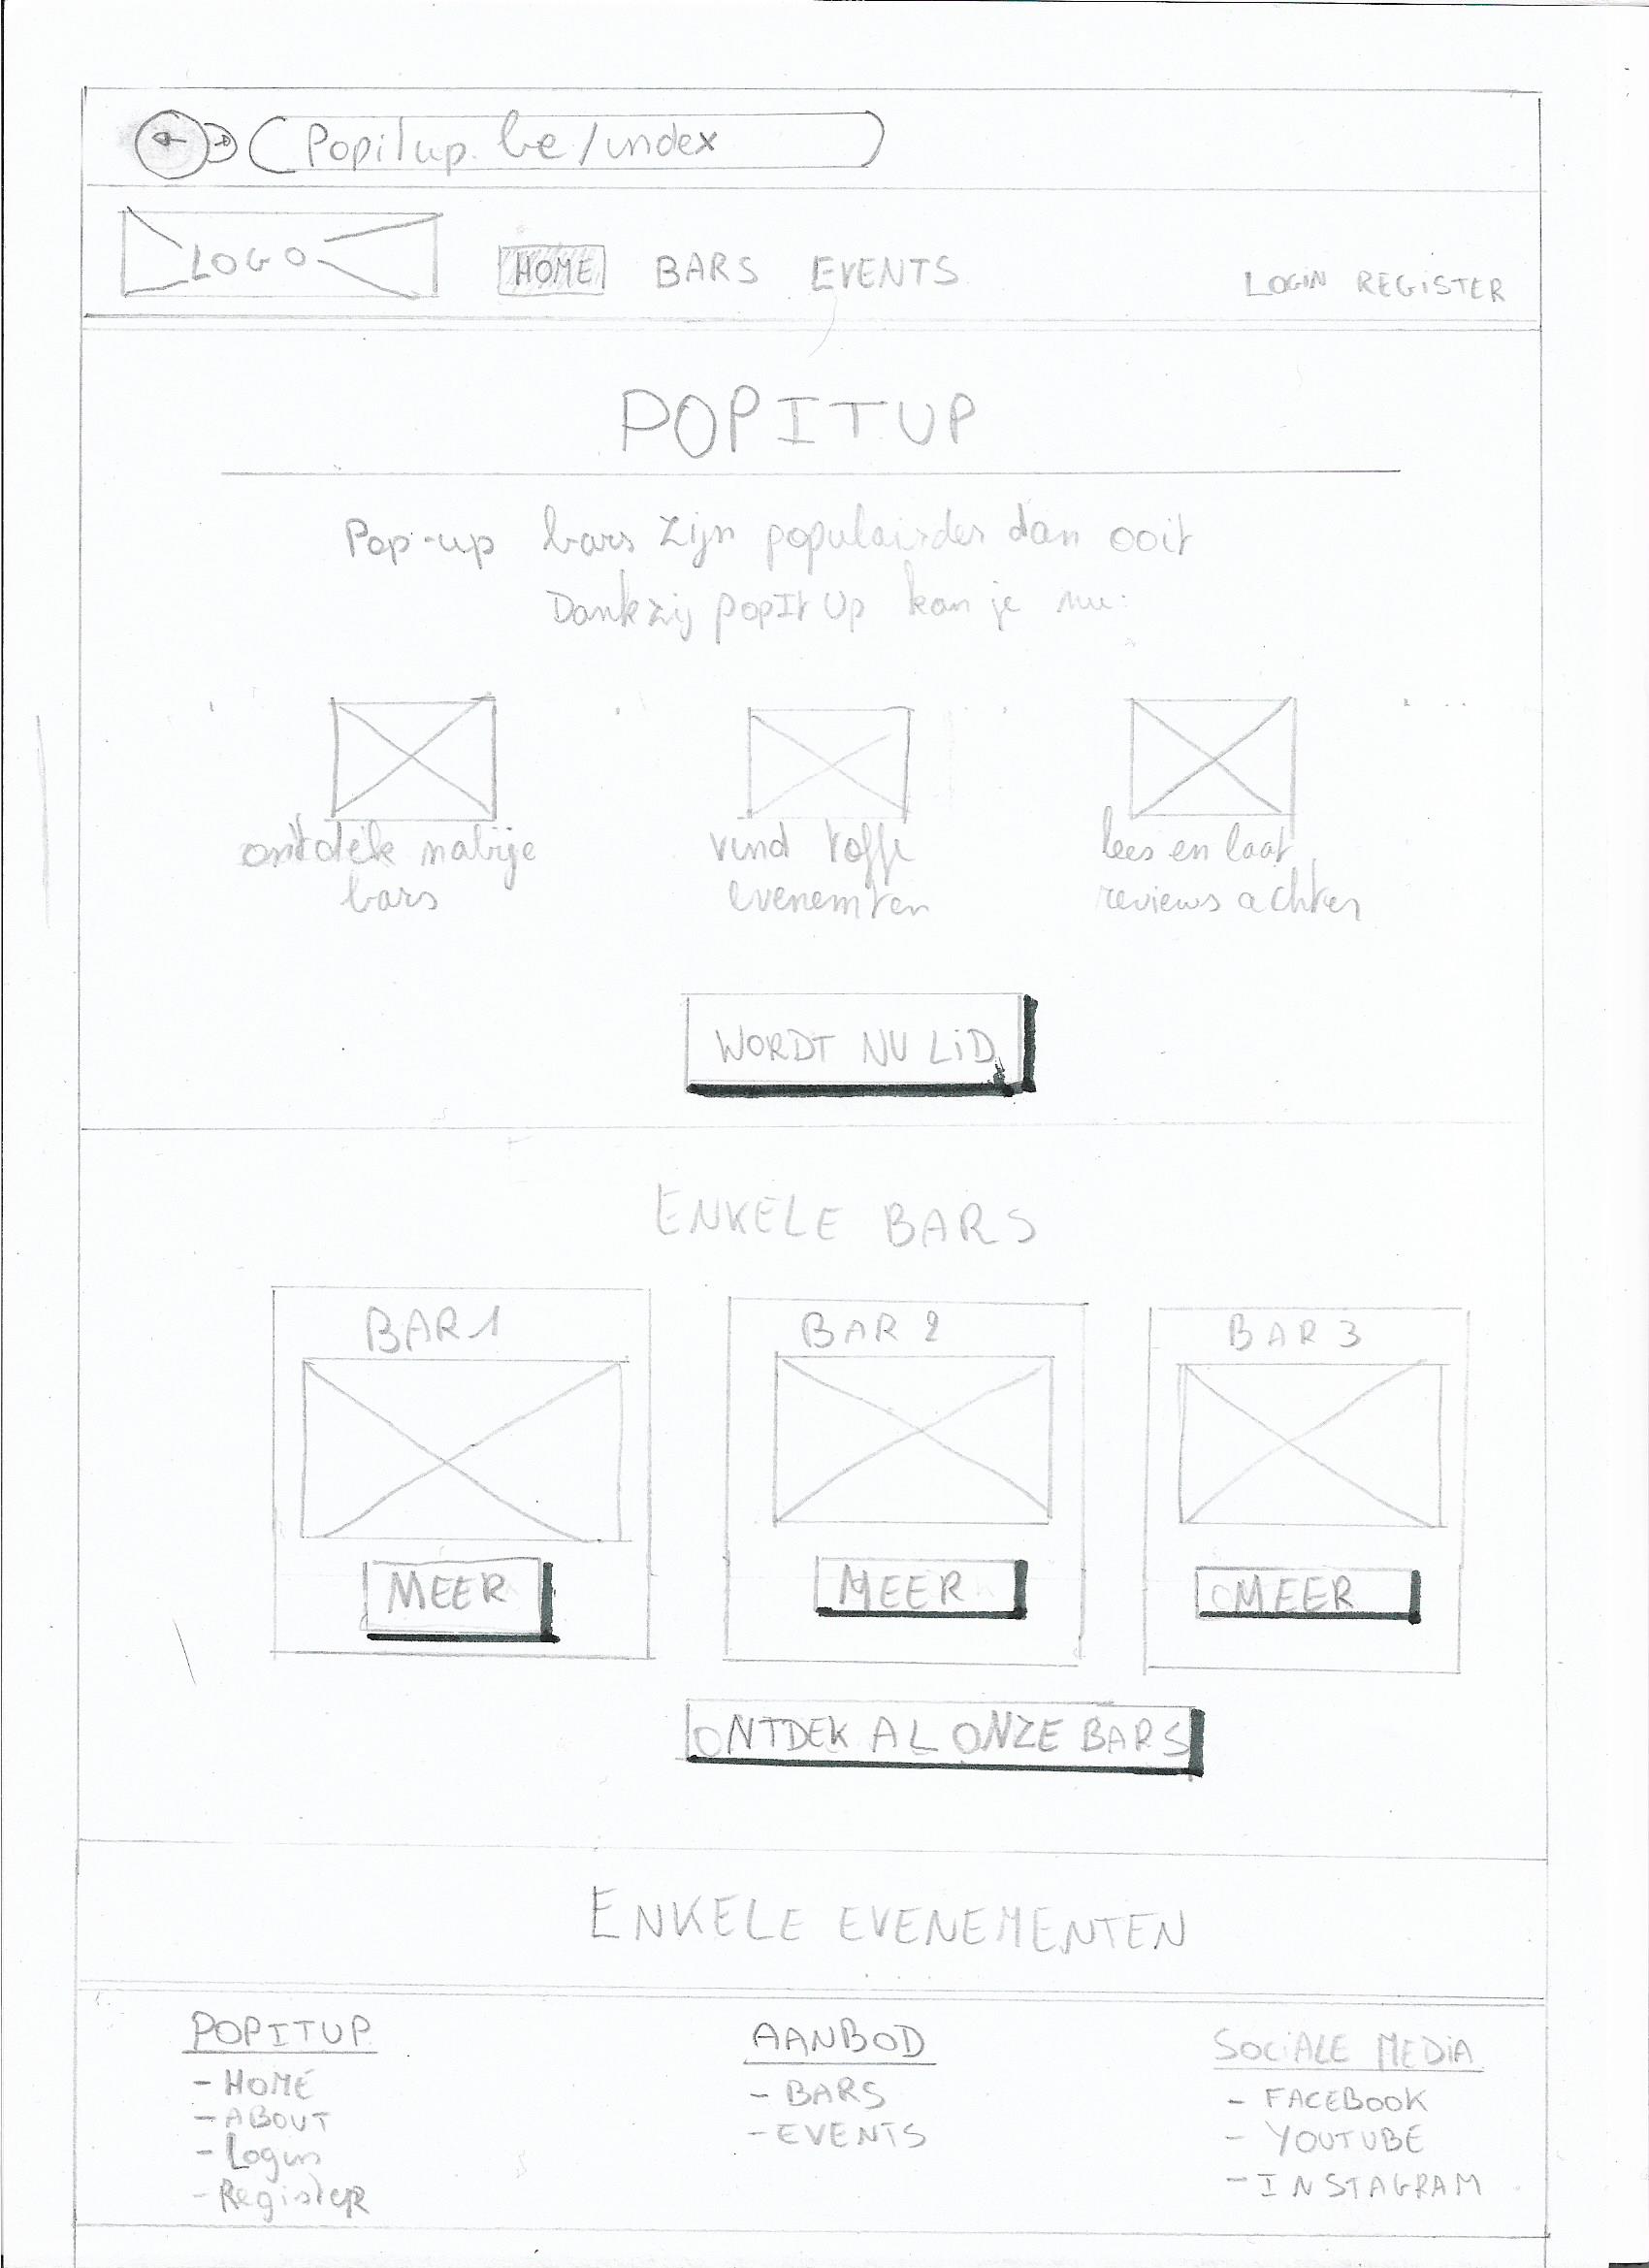 Popitup.be/index
LOGO HOME BARS EVENTS LOGIN REGISTER
POPITUP
Pop-up bars zijn populairder dan ooit
Dankzij PopIt Up kan je nu:
ontdek nabije bars
vind toffe evenemten
lees en laat reviews achter
WORDT NU LID
ENKELE BARS
BAR 1
BAR 2
BAR 3
MEER
MEER
MEER
ONTDEK AL ONZE BARS
ENKELE EVENEMENTEN
POPITUP
- HOME
- ABOUT
- Login
- Register
AANBOD
- BARS
- EVENTS
SOCIALE MEDIA
- FACEBOOK
- YOUTUBE
- INSTAGRAM